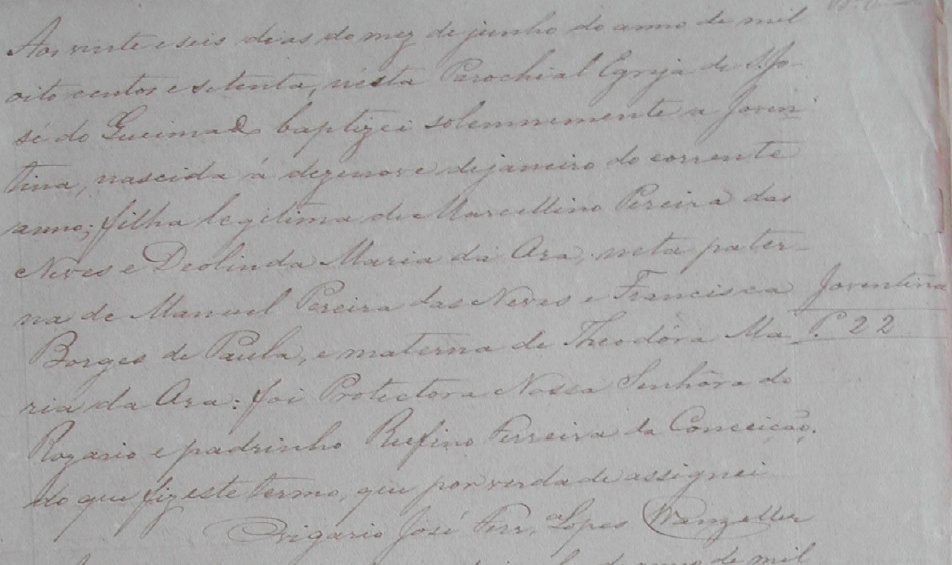 Aos vinte e seis dias do mez de junho do anno de mil
oito centos e setenta, nesta Parochial Egreja de S. Jo-
sé do Queimado baptizei solemnemente a Joven-
tina, nascida á dezenove de janeiro do corrente
anno; filha legitima de Marcellino Pereira das
Neves e Deolinda Maria da Ara, neta pater-
na de Manuel Pereira das Neves e Francisca
Joventina
Borges de Paula, e materna de Theodóra Ma-
P. 22
ria da Ara: foi Protectora Nossa Senhóra do
Rozario e padrinho Rufino Ferreira da Conceição,
do que fiz este termo, que por verdade assignei
Vigario José Ferr.a Lopes Wanzeller
do anno de mil